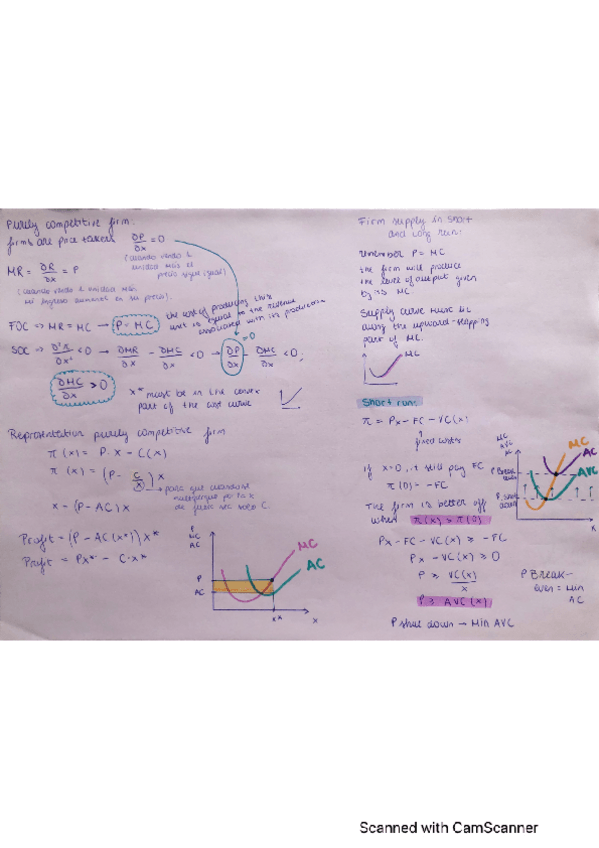 Purely competitive firm:
firms are price takers ∂P/∂x = 0
(cuando vendo 1
unidad más el
precio sigue igual)
MR = ∂R/∂x = P
(cuando vendo 1 unidad más
mi ingreso aumenta en su precio).
FOC ⇔ MR = MC → P = MC
the cost of producing this
unit is equal to the revenue
associated with its production
SOC ⇔ ∂²π/∂x² < 0 → ∂MR/∂x - ∂MC/∂x < 0 → ∂P/∂x - ∂MC/∂x < 0;
= 0
∂MC/∂x > 0
x* must be in the convex
part of the cost curve
Representation purely competitive firm
π(x) = P · x - C(x)
π(x) = (P - C/x) x
para que cuando
multiplique por la x
de fuera sea solo C.
x = (P - AC) x
Profit = (P - AC(x*)) x*
Profit = Px* - C·x*
P
MC
AC
MC
AC
P
AC
x*
x
Firm supply in short
and long run:
remember P = MC
the firm will produce
the level of output given
by its MC
Supply curve must lie
along the upward-slopping
part of MC.
MC
Short run:
π = Px - FC - VC(x)
fixed costs
if x=0, I still pay FC
π(0) = -FC
The firm is better off
when π(x) ≥ π(0)
Px - FC - VC(x) ≥ -FC
Px - VC(x) ≥ 0
P ≥ VC(x)/x
P ≥ AVC(x)
P shut down → Min AVC
MC
AVC
MC
AC
AVC
P Break
even
P shut
down
x
P Break-
even = Min
AC
Scanned with CamScanner